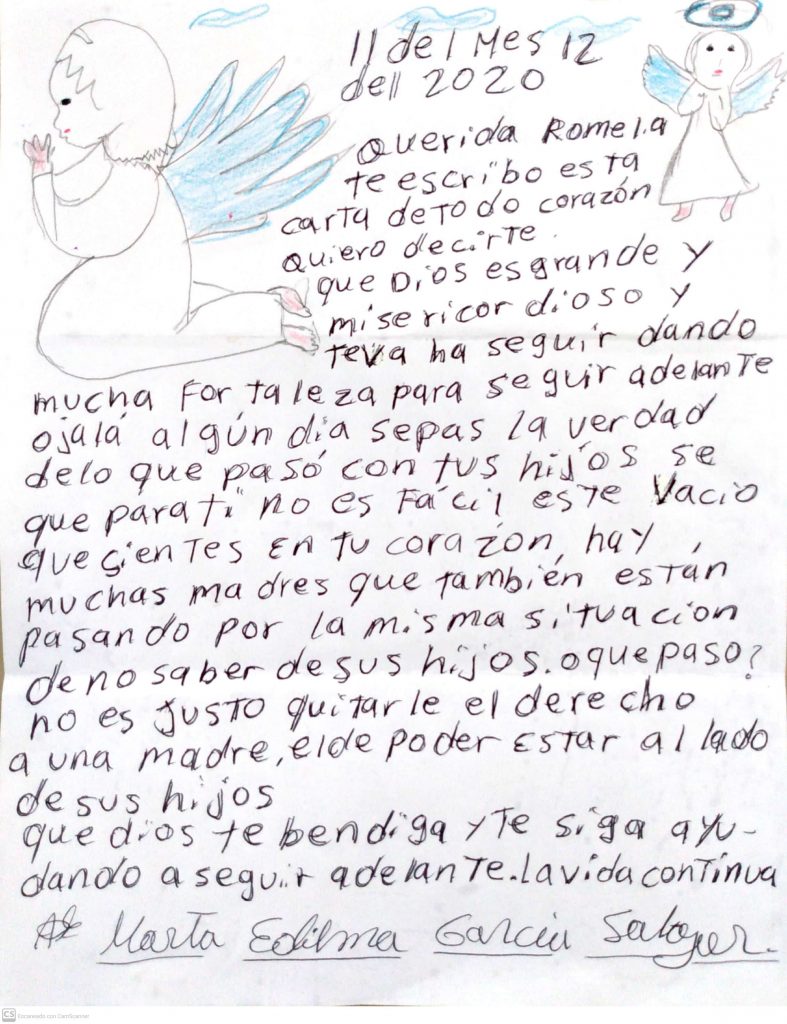 11 del Mes 12
dell 2020
Querida Romelia
te escribo esta
carta de todo corazón
quiero decirte.
que Dios es grande y
misericordioso y
te va ha seguir dando
mucha fortaleza para seguir adelante
ojalá algún día sepas la verdad
de lo que pasó con tus hijos se
que para ti no es Fácil este vacio
que cientes en tu corazón, hay
muchas madres que también están
pasando por la misma situación
de no saber de sus hijos. o que paso?
no es justo quitarle el derecho
a una madre, el de poder estar al lado
de sus hijos
que dios te bendiga y te siga ayu-
dando a seguir adelante. la vida continua
Marta Edilma García
CS Escaneado con CamScanner